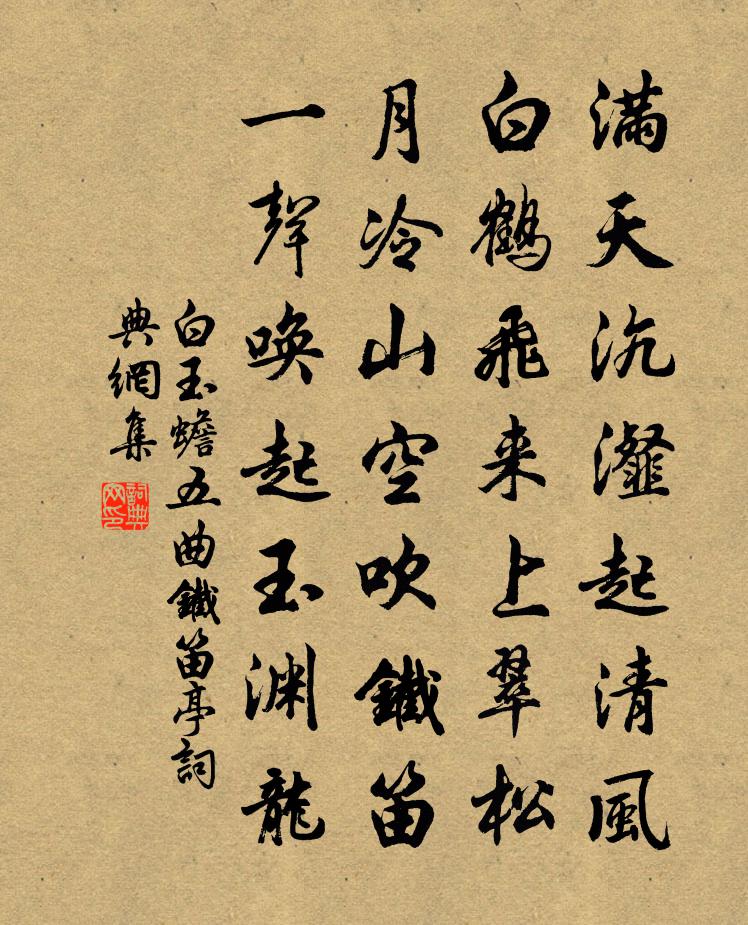 满天沆瀣起清風
白鶴飛来上翠松
月冷山空吹鐵笛
一聲唤起玉渊龍
白玉蟾五曲鐵笛亭詞
典網集
詞典
网印